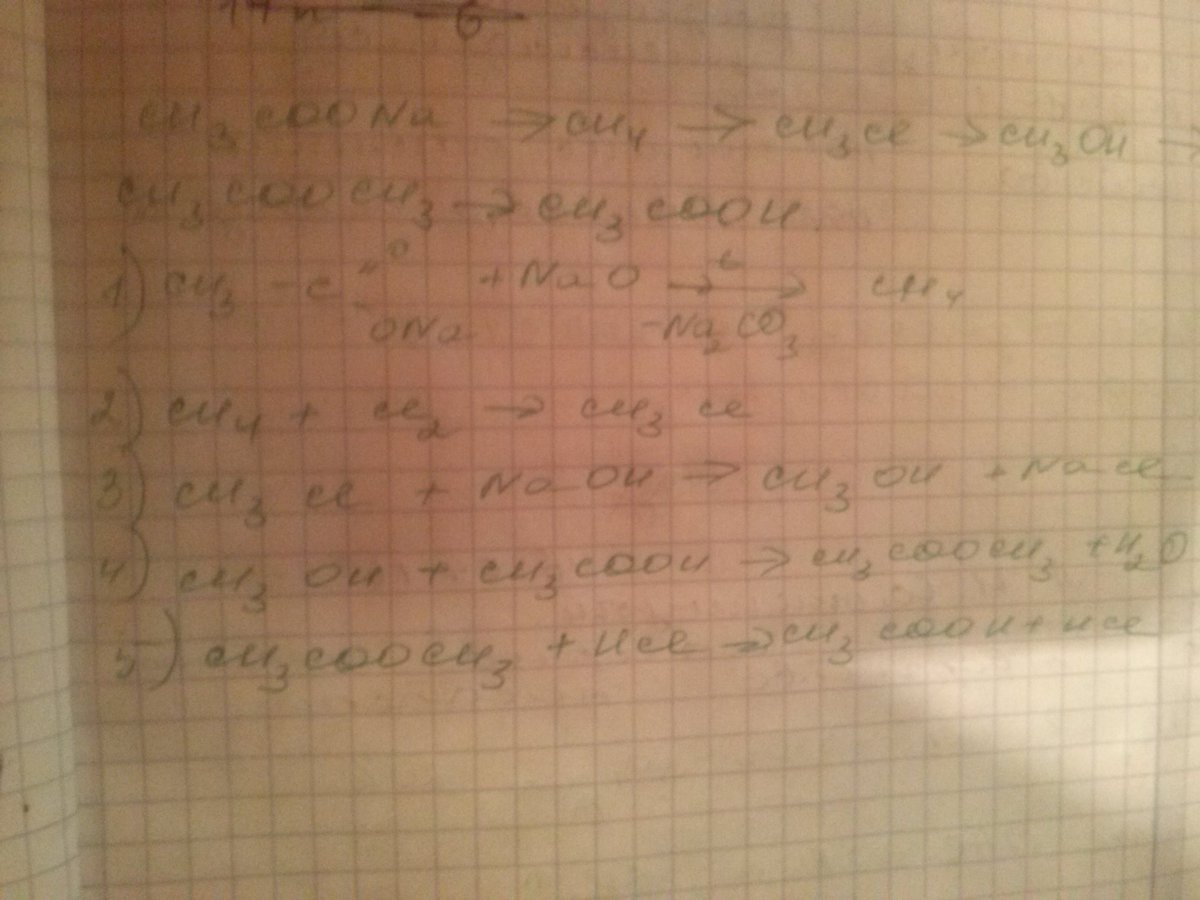 CH₃COONa → CH₄ → CH₃Cl → CH₃OH →
CH₃COOCH₃ → CH₃COOH
1) CH₃ - C =O -ONa + NaO →t -Na₂CO₃ CH₄
2) CH₄ + Cl₂ → CH₃Cl
3) CH₃Cl + NaOH → CH₃OH + NaCl
4) CH₃OH + CH₃COOH → CH₃COOCH₃ + H₂O
5) CH₃COOCH₃ + HCl → CH₃COOH + HCl